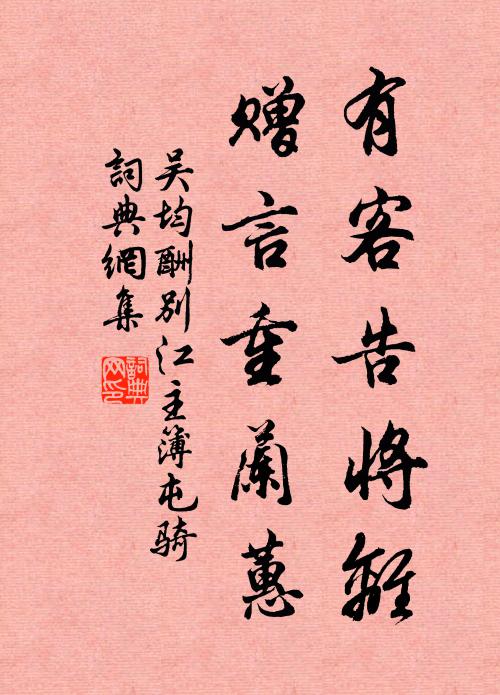 有客告將離
贈言重蘭蕙
吴均酬別江主簿屯騎
詞典網集
詞典網印